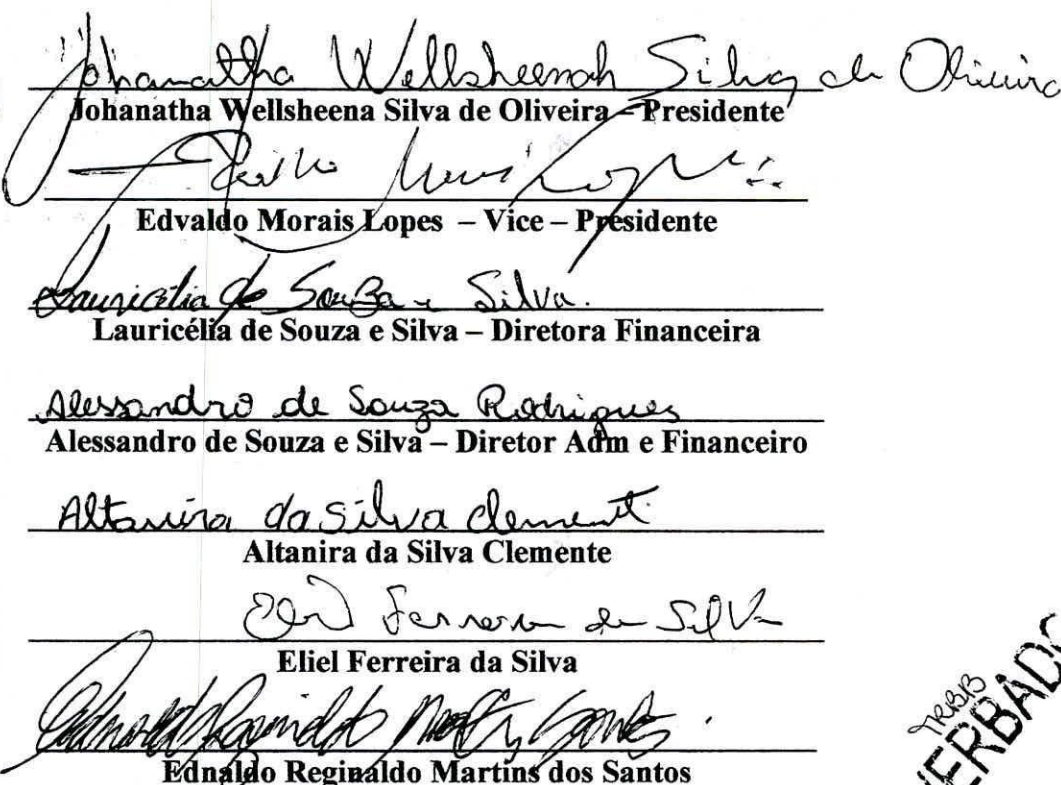 Johanatha Wellsheenah Silva de Oliveira
Johanatha Wellsheena Silva de Oliveira – Presidente
Lopes
Edvaldo Morais Lopes – Vice – Presidente
Lauricélia de Souza e Silva.
Lauricélia de Souza e Silva – Diretora Financeira
Alessandro de Souza Rodrigues
Alessandro de Souza e Silva – Diretor Adm e Financeiro
Altanira da Silva Clemente
Altanira da Silva Clemente
Ferreira da Silva
Eliel Ferreira da Silva
Ednaldo Reginaldo Martins dos Santos